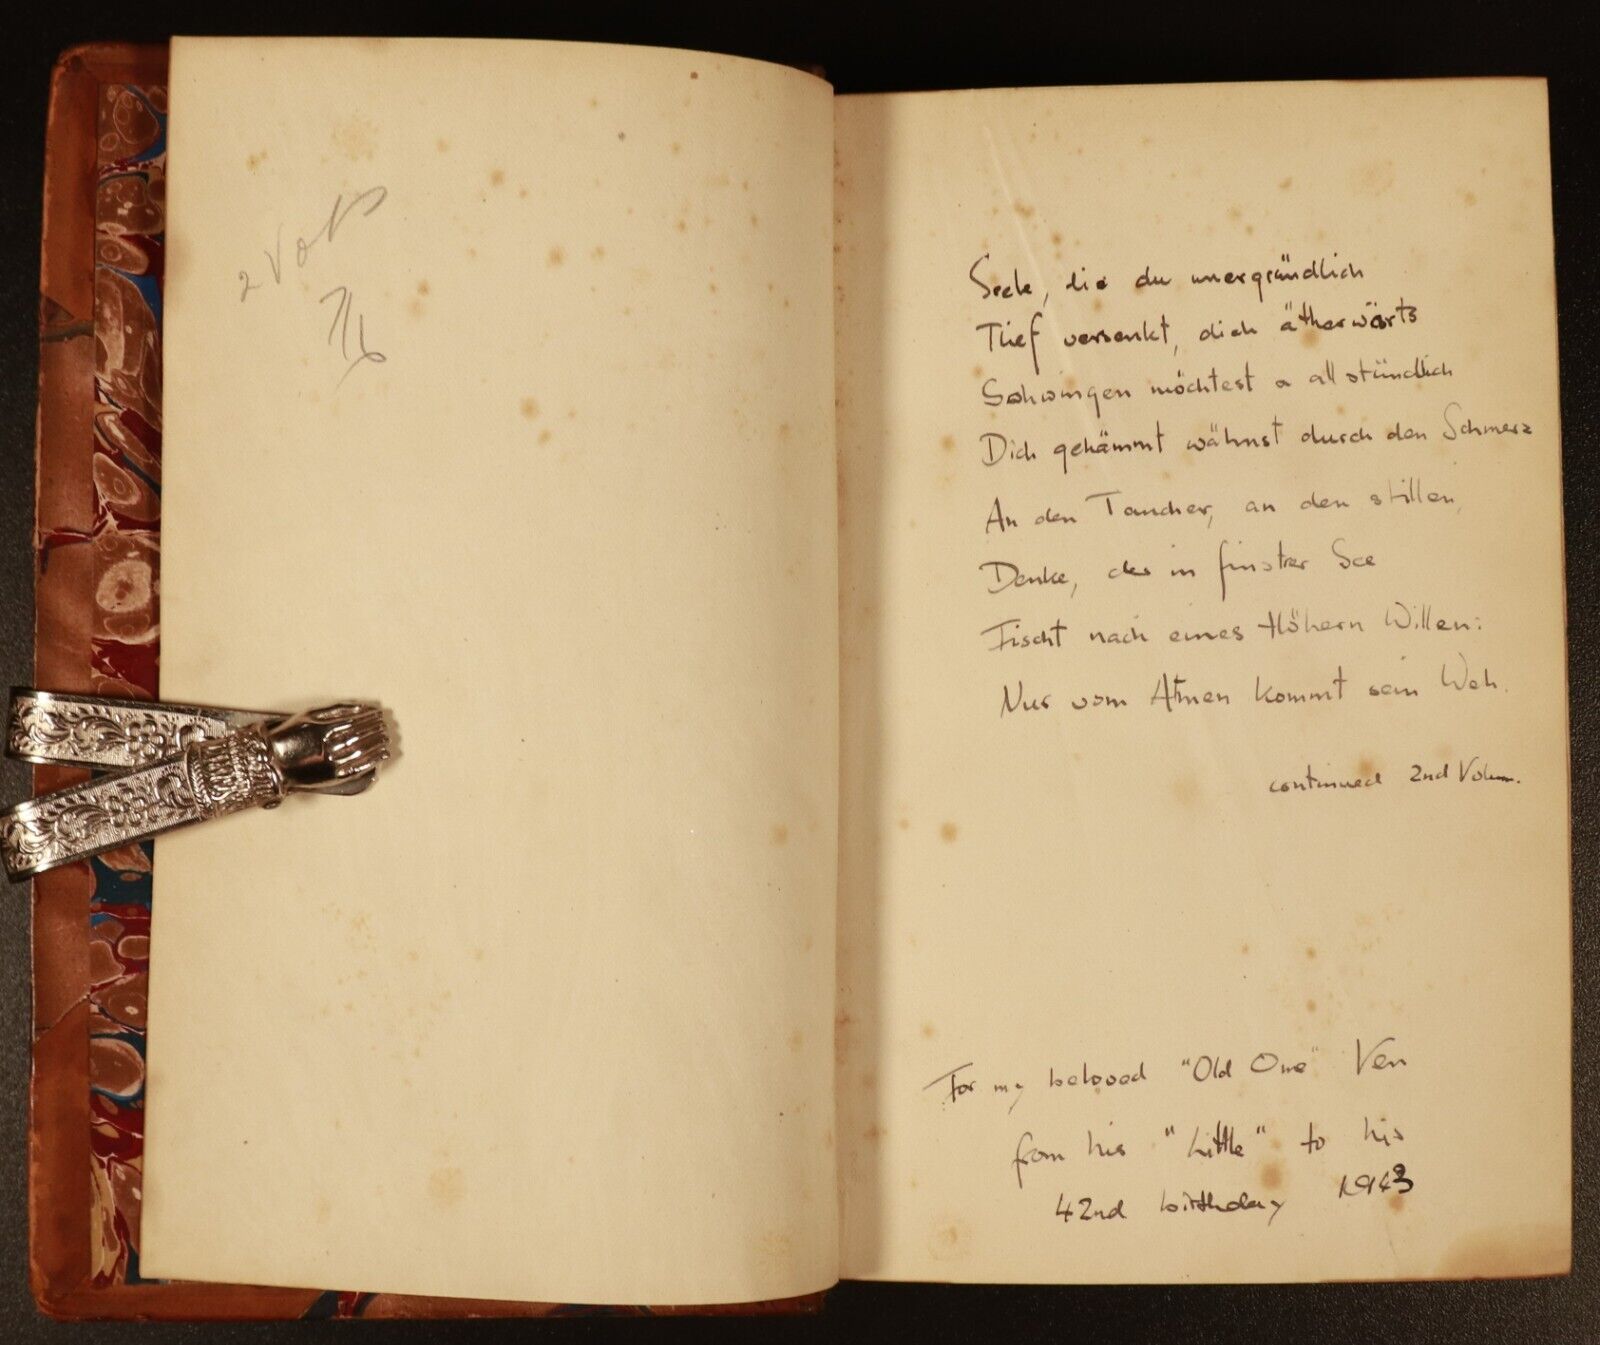 2 Vols
7/6
Seele, die du unergründlich
Tief versenkt, dich ätherwärts
Schwingen möchtest u allstündlich
Dich gehämmt wähnst durch den Schmerz
An den Taucher, an den stillen,
Denke, der in finstrer See
Fischt nach eines Höhern Willen:
Nur vom Atmen kommt sein Weh.
continued 2nd Volum.
For my beloved "Old One" Ven
from his "Little" to his
42nd birthday 1943